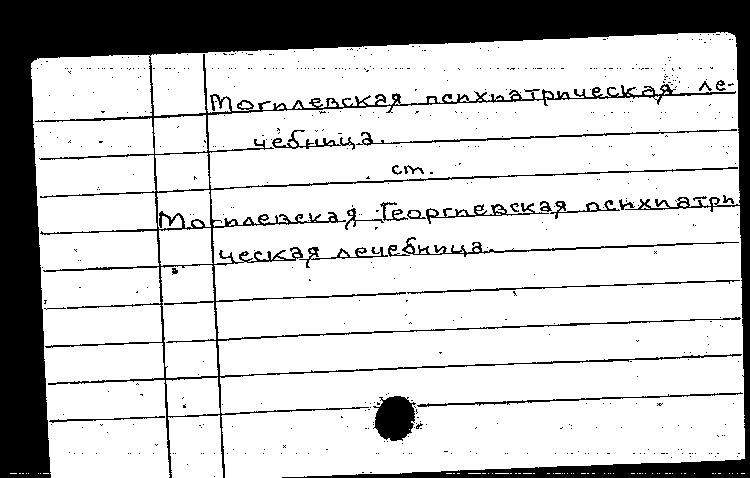 Могилевская психиатрическая ле-
чебница.
ст.
Могилевская Георгиевская психиатри
ческая лечебница.